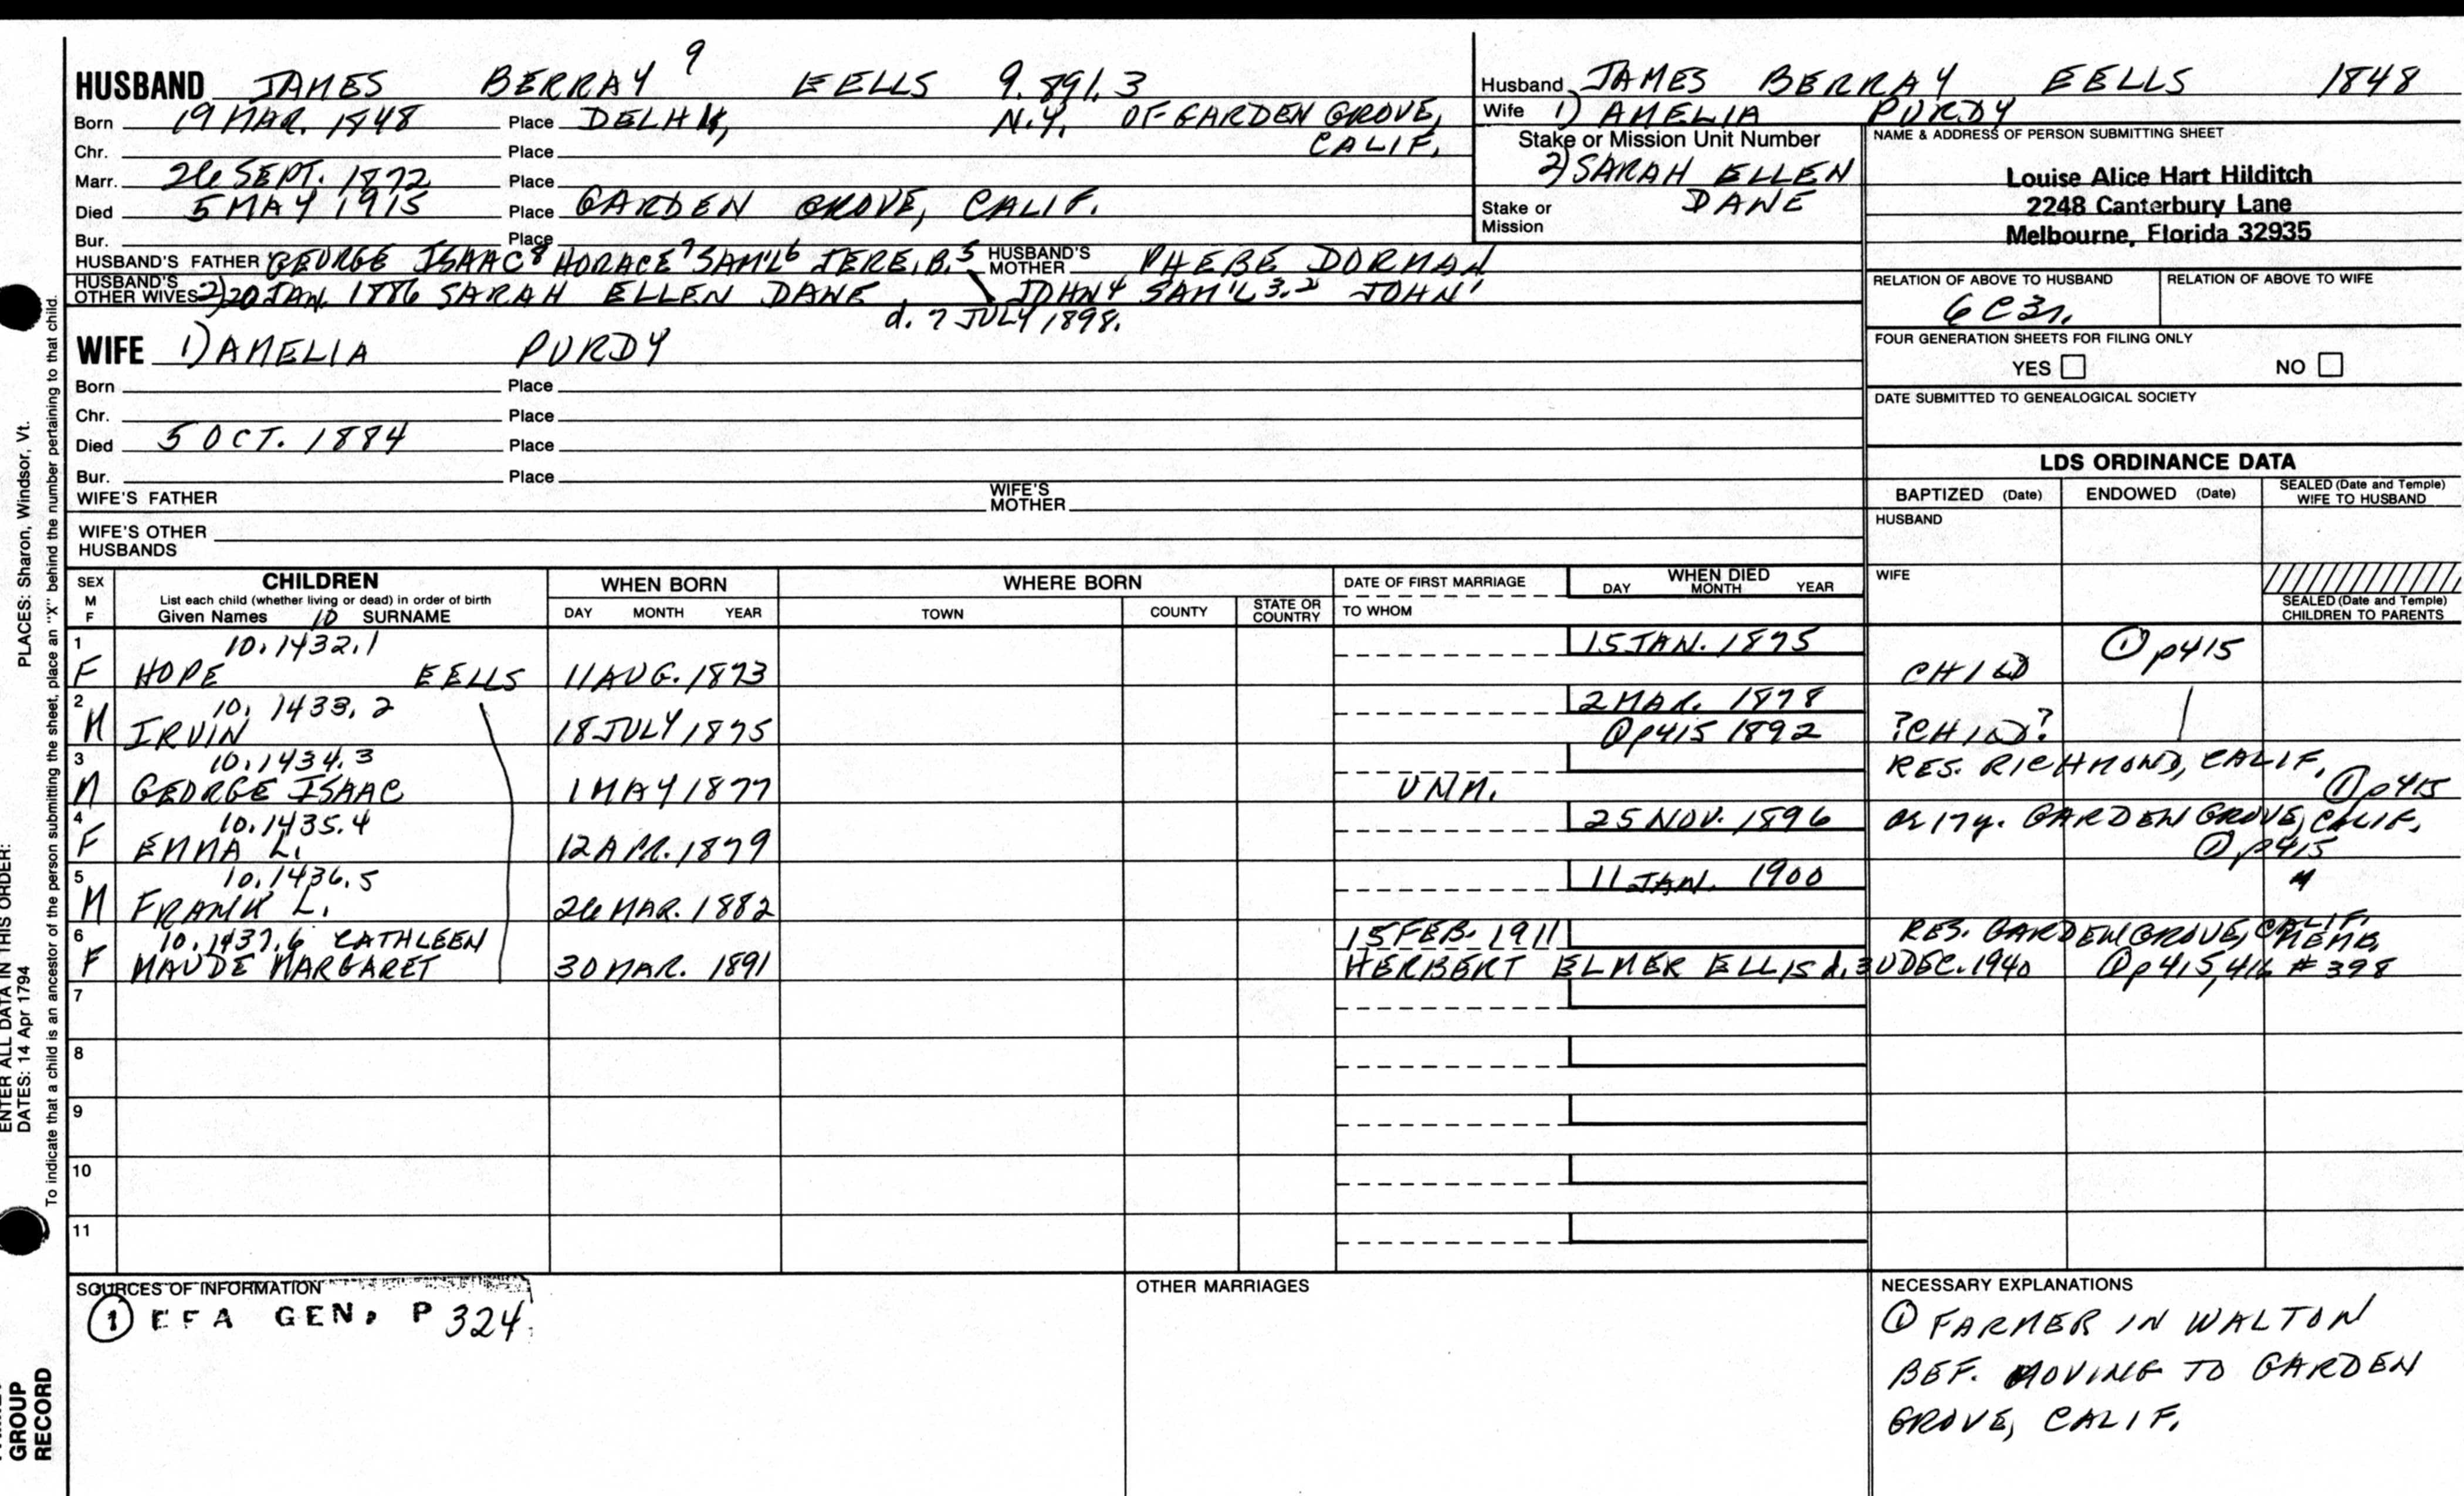 HUSBAND JAMES BERRAY 9 EELLS 9.891.3
Born 19 MAR. 1848 Place DELHI, N.Y. OF GARDEN GROVE,
Chr. Place CALIF.
Marr. 26 SEPT. 1872 Place
Died 5 MAY 1915 Place GARDEN GROVE, CALIF.
Bur. Place
HUSBAND'S FATHER GEORGE ISAAC 8 HORACE 7 SAM'L 6 JERE. B. 5 HUSBAND'S MOTHER PHEBE DORMAN
HUSBAND'S OTHER WIVES 2) 20 JAN. 1886 SARAH ELLEN DANE JOHN 4 SAM'L 3.2 JOHN 1
d. 7 JULY 1898.
WIFE 1) AMELIA PURDY
Born Place
Chr. Place
Died 5 OCT. 1884 Place
Bur. Place
WIFE'S FATHER WIFE'S MOTHER
WIFE'S OTHER HUSBANDS
Husband JAMES BERRAY EELLS 1848
Wife 1) AMELIA PURDY
Stake or Mission Unit Number
2) SARAH ELLEN DANE
Stake or Mission
NAME & ADDRESS OF PERSON SUBMITTING SHEET
Louise Alice Hart Hilditch
2248 Canterbury Lane
Melbourne, Florida 32935
RELATION OF ABOVE TO HUSBAND RELATION OF ABOVE TO WIFE
6C3r.
FOUR GENERATION SHEETS FOR FILING ONLY
YES NO
DATE SUBMITTED TO GENEALOGICAL SOCIETY
LDS ORDINANCE DATA
BAPTIZED (Date) ENDOWED (Date) SEALED (Date and Temple) WIFE TO HUSBAND
HUSBAND
WIFE
SEALED (Date and Temple) CHILDREN TO PARENTS
SEX M F
CHILDREN
List each child (whether living or dead) in order of birth
Given Names 10 SURNAME
WHEN BORN
DAY MONTH YEAR
WHERE BORN
TOWN COUNTY STATE OR COUNTRY
DATE OF FIRST MARRIAGE
TO WHOM
WHEN DIED
DAY MONTH YEAR
1 10.1432.1 15 JAN. 1875 ① p415
F HOPE EELLS 11 AUG. 1873 CHILD
2 10.1433.2 2 MAR. 1878
M IRVIN 18 JULY 1875 ① p415 1892 ?CHILD?
3 10.1434.3 RES. RICHMOND, CALIF.
M GEORGE ISAAC 1 MAY 1877 UNM. ① p415
4 10.1435.4 25 NOV. 1896 ae 17y. GARDEN GROVE, CALIF.
F EMMA L. 12 APR. 1879 ① p415
5 10.1436.5 11 JAN. 1900 "
M FRANK L. 26 MAR. 1882
6 10.1437.6 CATHLEEN 15 FEB. 1911 RES. GARDEN GROVE, CALIF. MEMB.
F MAUDE MARGARET 30 MAR. 1891 HERBERT ELMER ELLIS d. 30 DEC. 1940 ① p415, 416 #398
7
8
9
10
11
SOURCES OF INFORMATION
① EFA GEN. P 324.
OTHER MARRIAGES
NECESSARY EXPLANATIONS
① FARMER IN WALTON
BEF. MOVING TO GARDEN
GROVE, CALIF.
ENTER ALL DATA IN THIS ORDER:
DATES: 14 Apr 1794 PLACES: Sharon, Windsor, Vt.
To indicate that a child is an ancestor of the person submitting the sheet, place an "X" behind the number pertaining to that child.
GROUP
RECORD